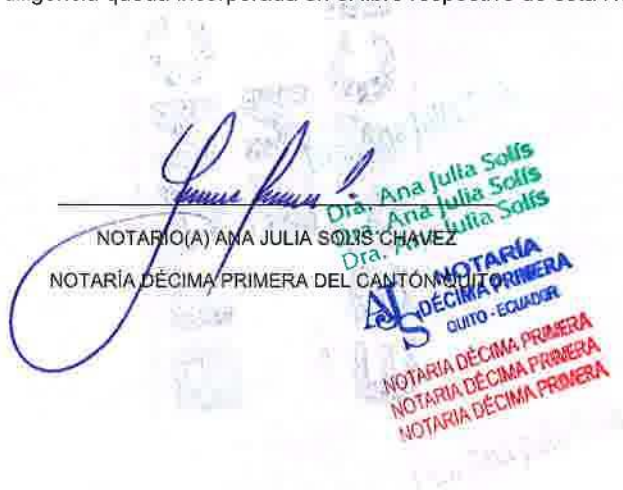 NOTARIO(A) ANA JULIA SOLIS CHAVEZ
NOTARÍA DÉCIMA PRIMERA DEL CANTÓN QUITO
Dra. Ana Julia Solís
Dra. Ana Julia Solís
Dra. Ana Julia Solís
AJS
NOTARÍA
DÉCIMA PRIMERA
QUITO - ECUADOR
NOTARIA DÉCIMA PRIMERA
NOTARIA DÉCIMA PRIMERA
NOTARIA DÉCIMA PRIMERA